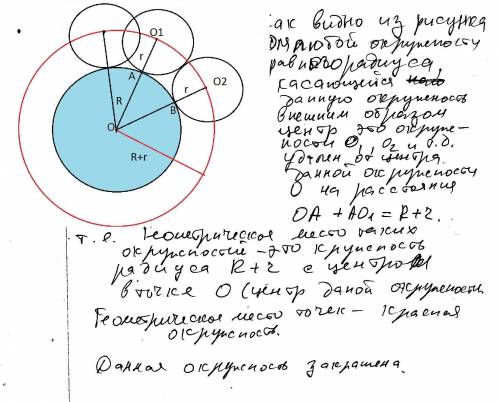 O1
r
A
r
O2
R
B
O
R+r
ак видно из рисунка
для любой окружности
равного радиуса,
касающейся
данную окружность
внешним образом
центр это окруж-
ности O₁, O₂ и т.д.
удален от центра
данной окружности
O на расстояния
OA + AO₁ = R+r.
т. е. Геометрическое место таких
окружностей - это окружность
радиуса R+r с центром
в точке O (центр даной окружности.
Геометрическое место точек - красная
окружность.
Данная окружность закрашена.